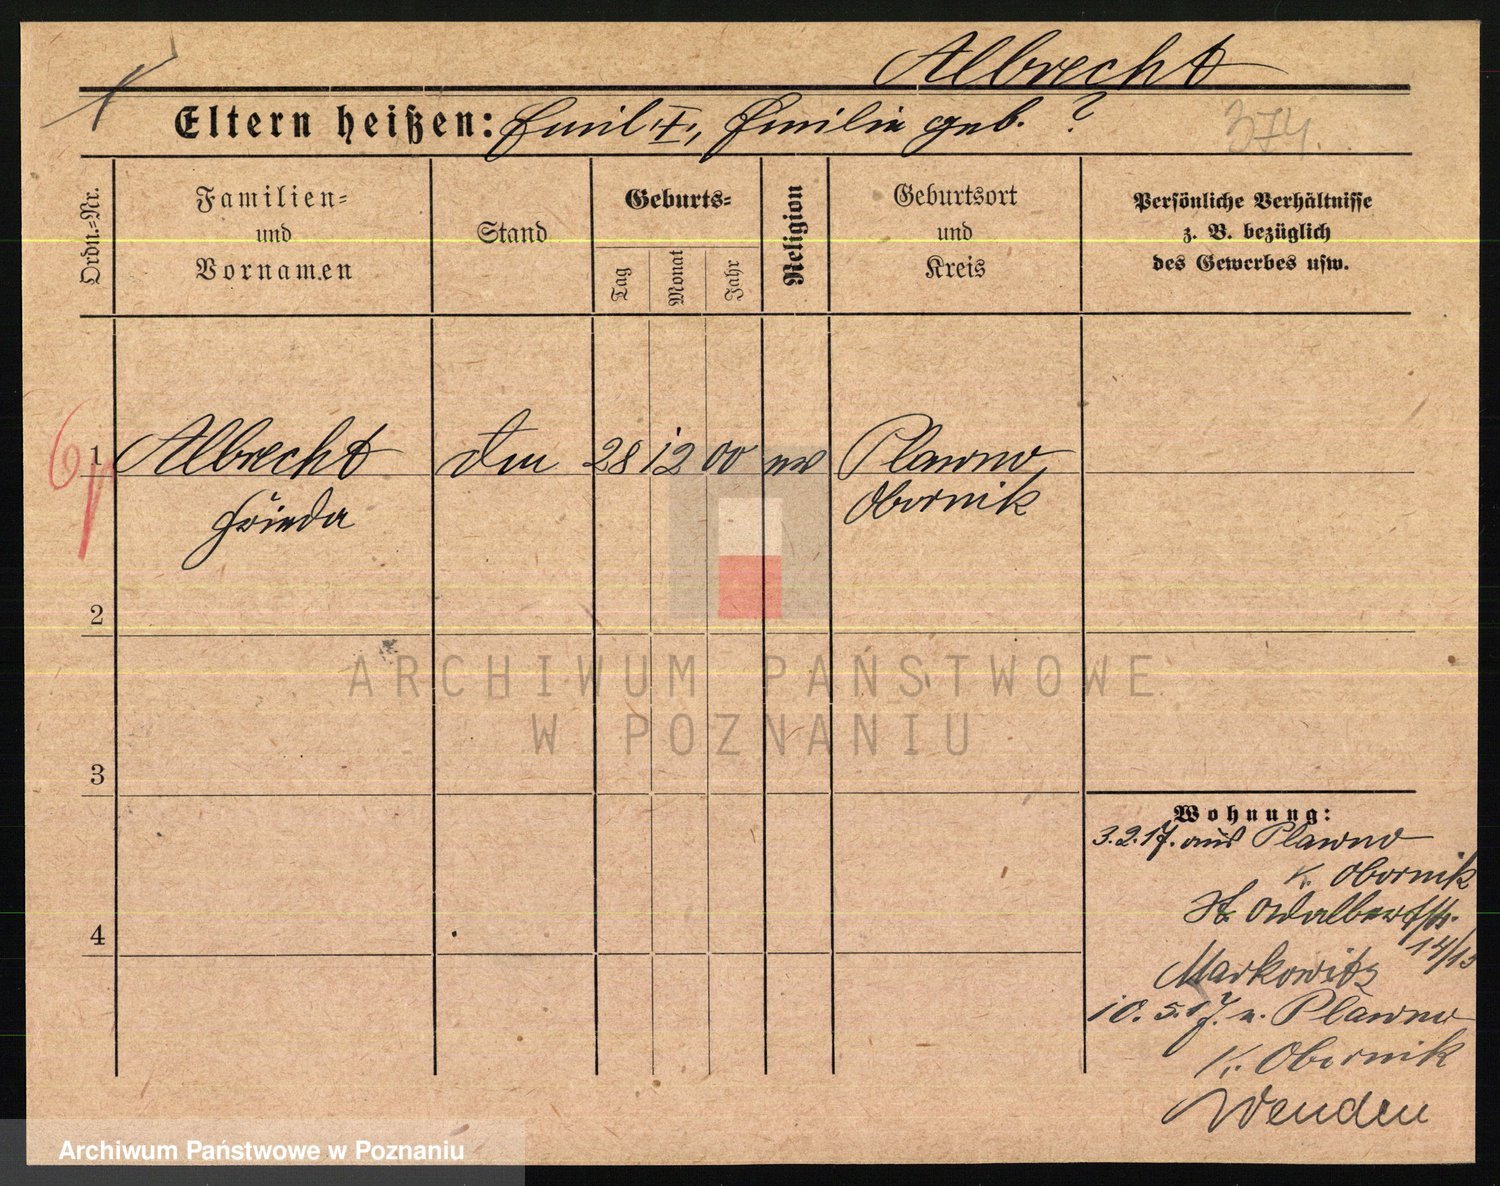 Albrecht
Eltern heißen: Emil I, Emilie geb. ?
374.
Ordn.-Nr.
Familien-
und
Vornamen
Stand
Geburts-
Tag
Monat
Jahr
Religion
Geburtsort
und
Kreis
Persönliche Verhältnisse
z. B. bezüglich
des Gewerbes usw.
1 Albrecht 28 12 00 Plawno,
Frieda Obornik
2
ARCHIWUM PAŃSTWOWE
W POZNANIU
3
Wohnung:
3.2.17. aus Plawno
K. Obornik
4
St. Adalbertstr.
14/15
Markowitz
10. 5. 17. n. Plawno
K. Obornik
Wenden
Archiwum Państwowe w Poznaniu